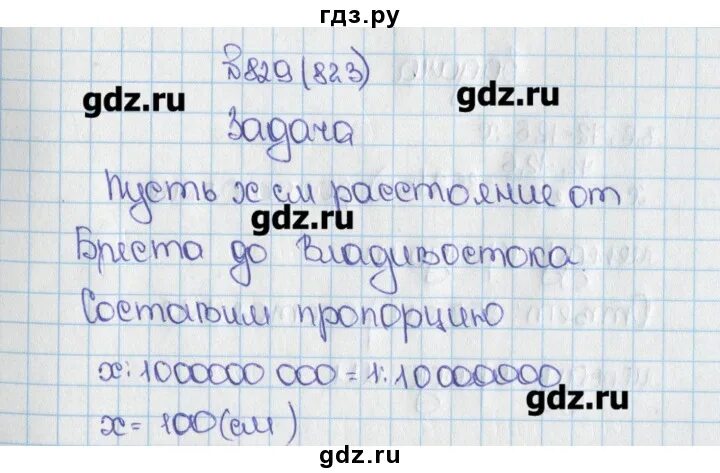 гдз.ру
№829(823)
gdz.ru
gdz.ru
Задача
Пусть х см расстояние от
gdz.ru
Бреста до Владивостока.
Составим пропорцию
х:1000000 000=1:10000000
gdz.ru
х=100(см)
gdz.ru